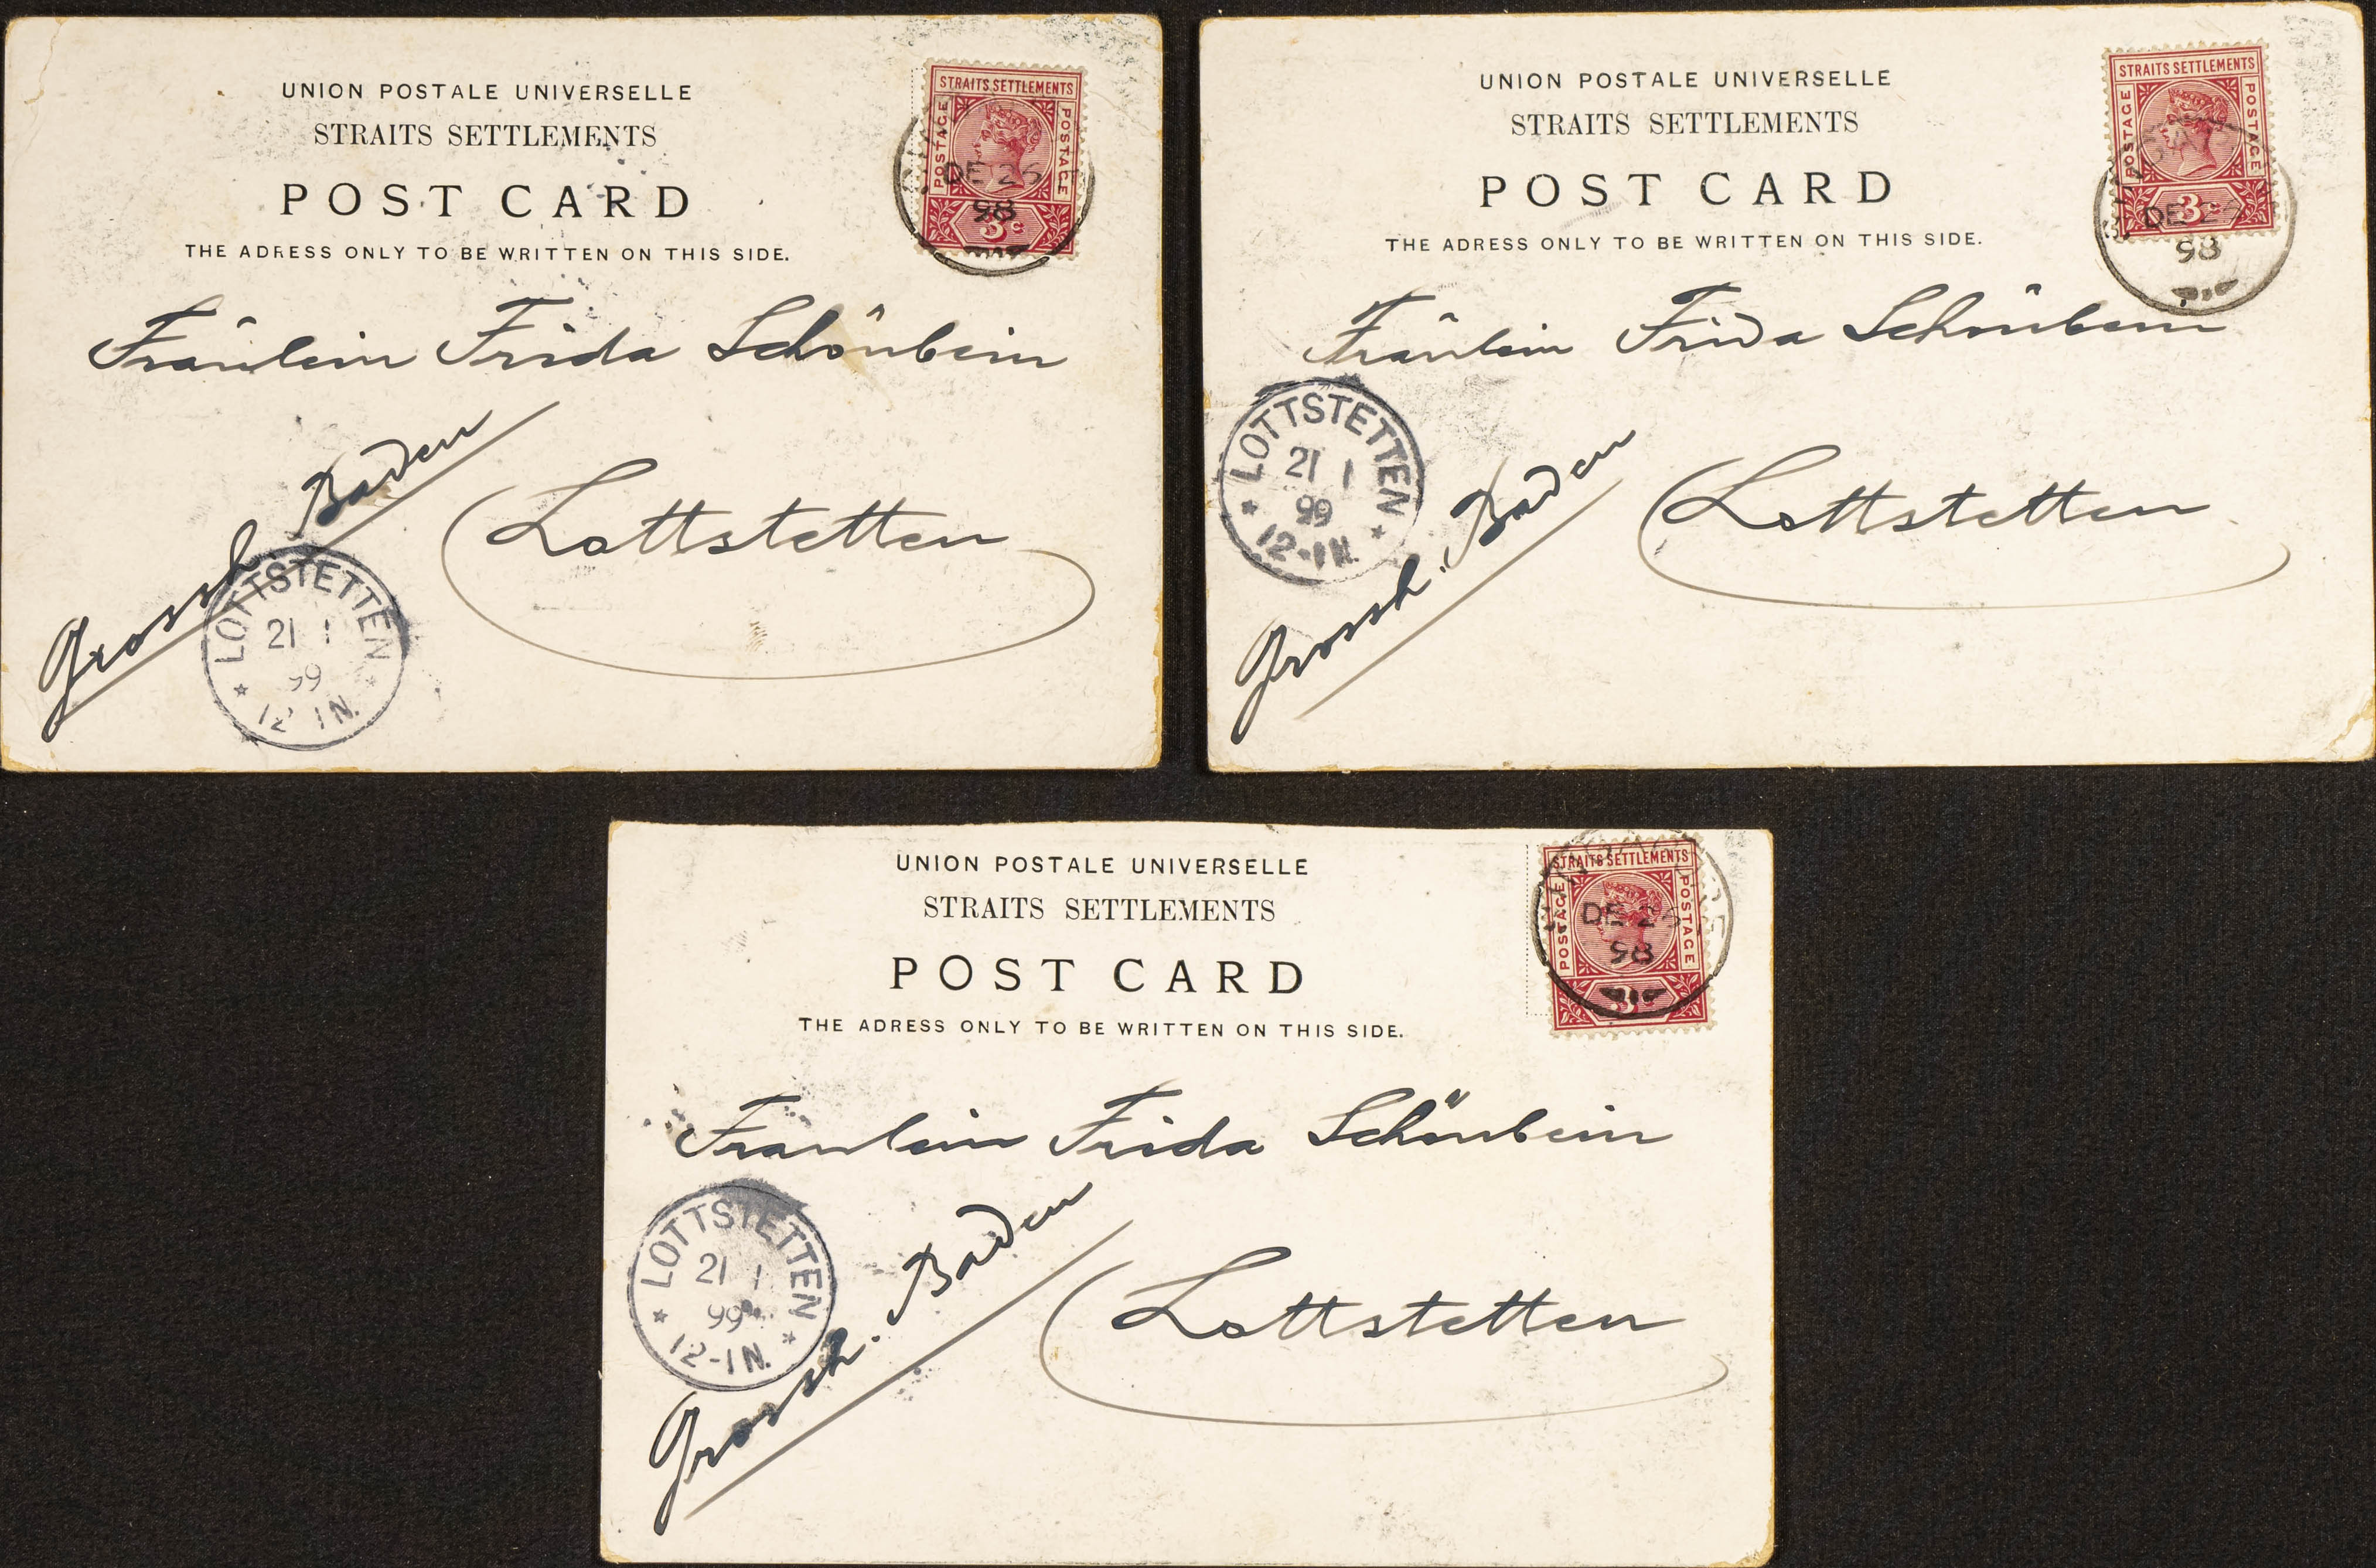 UNION POSTALE UNIVERSELLE
STRAITS SETTLEMENTS
POST CARD
THE ADRESS ONLY TO BE WRITTEN ON THIS SIDE.
STRAITS SETTLEMENTS
POSTAGE
POSTAGE
3c
DE 26
98
Fräulein Frida Schönbein
Grossh. Baden
Lottstetten
LOTTSTETTEN
21 1
99
12-1N.
UNION POSTALE UNIVERSELLE
STRAITS SETTLEMENTS
POST CARD
THE ADRESS ONLY TO BE WRITTEN ON THIS SIDE.
STRAITS SETTLEMENTS
POSTAGE
POSTAGE
3c
DE
98
Fräulein Frida Schönbein
LOTTSTETTEN
21 1
99
12-1N.
Grossh. Baden
Lottstetten
UNION POSTALE UNIVERSELLE
STRAITS SETTLEMENTS
POST CARD
THE ADRESS ONLY TO BE WRITTEN ON THIS SIDE.
STRAITS SETTLEMENTS
POSTAGE
POSTAGE
DE 26
98
Fraulein Frida Schönbein
LOTTSTETTEN
21 1
99
12-1N.
Grossh. Baden
Lottstetten